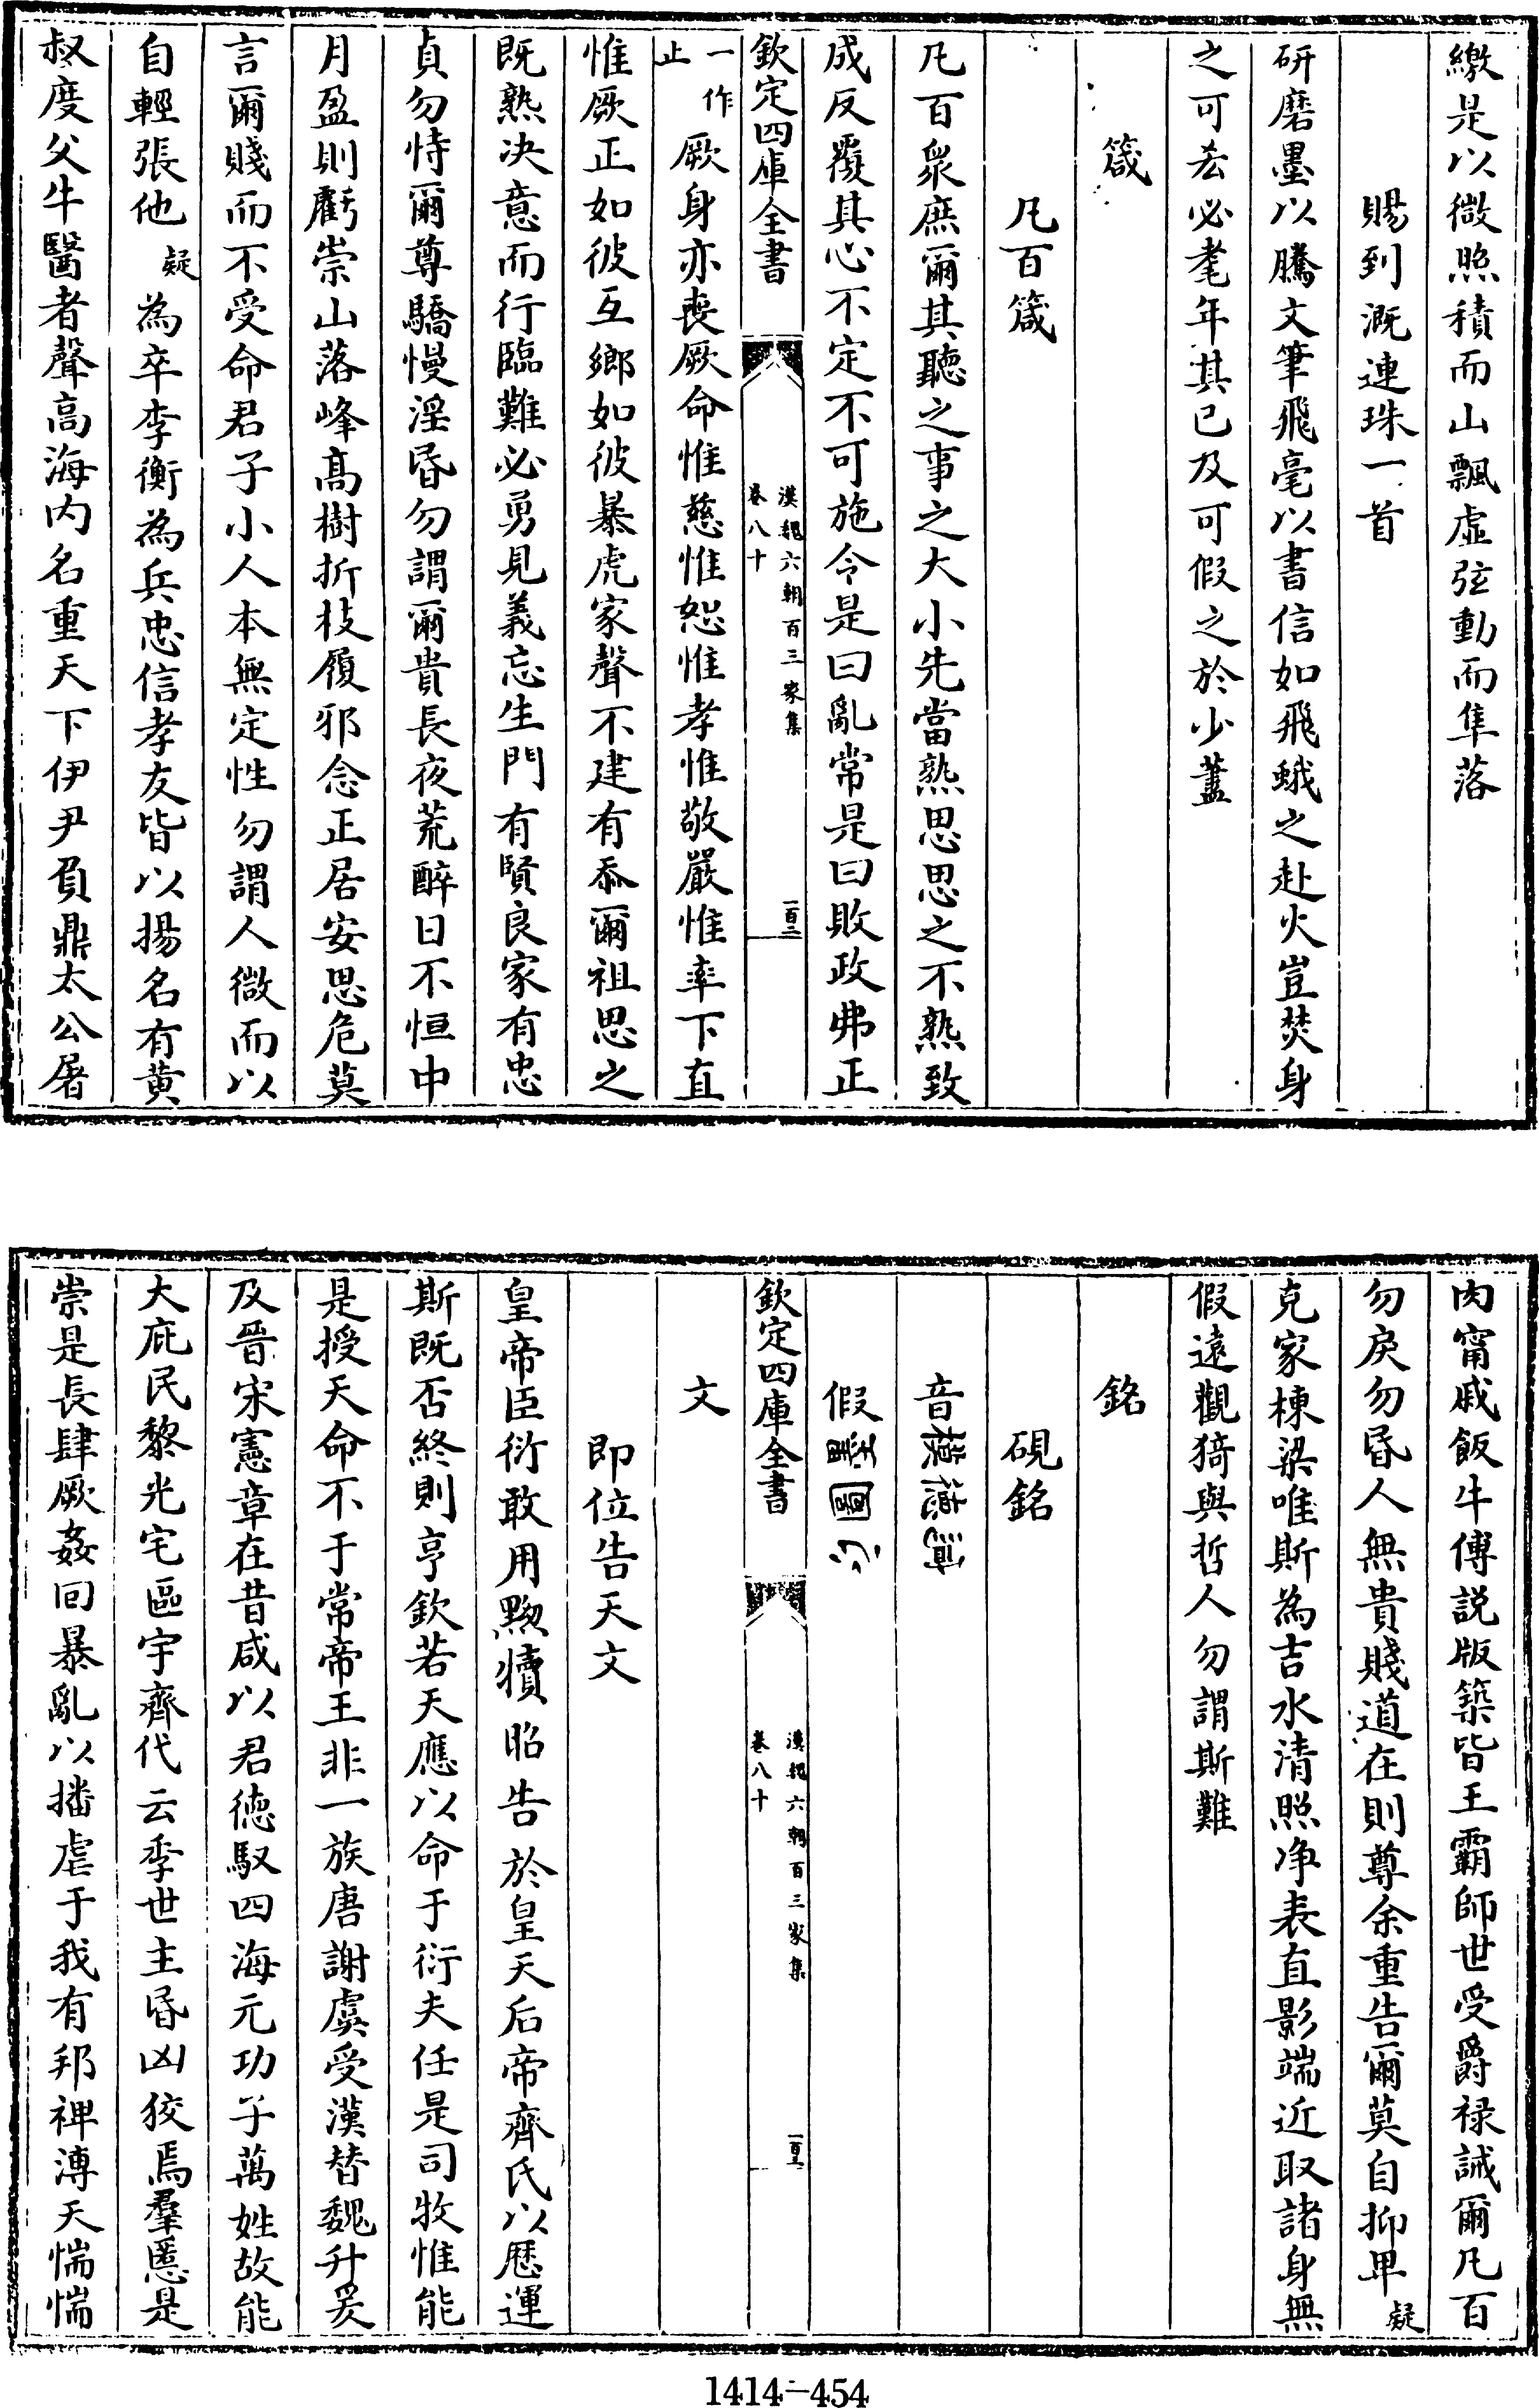 繳是以微照積而山飄虛弦動而隼落
賜到溉連珠一首
研磨墨以騰文筆飛毫以書信如飛蛾之赴火豈焚身
之可吝必耄年其已及可假之於少藎
箴
凡百箴
凡百衆庶爾其聽之事之大小先當熟思思之不熟致
成反覆其心不定不可施令是曰亂常是曰敗政弗正
欽定四庫全書
漢魏六朝百三家集
卷八十
一百二
一作止厥身亦喪厥命惟慈惟恕惟孝惟敬嚴惟率下直
惟厥正如彼互鄉如彼暴虎家聲不建有忝爾祖思之
既熟决意而行臨難必勇見義忘生門有賢良家有忠
貞勿恃爾尊驕慢淫昏勿謂爾貴長夜荒醉日不恒中
月盈則虧崇山落峰高樹折枝履邪念正居安思危莫
言爾賤而不受命君子小人本無定性勿謂人微而以
自輕張他疑為卒李衡為兵忠信孝友皆以揚名有黄
叔度父牛醫者聲高海内名重天下伊尹負鼎太公屠
肉甯戚飯牛傅説版築皆王霸師世受爵禄誡爾凡百
勿戾勿昏人無貴賤道在則尊余重告爾莫自抑卑疑
克家棟梁唯斯為吉水清照净表直影端近取諸身無
假遠觀猗與哲人勿謂斯難
銘
硯銘
音模德
假 國
欽定四庫全書
漢魏六朝百三家集
卷八十
一百三
文
即位告天文
皇帝臣衍敢用黝犢昭告於皇天后帝齊氏以厯運
斯既否終則亨欽若天應以命于衍夫任是司牧惟能
是授天命不于常帝王非一族唐謝虞受漢替魏升爰
及晉宋憲章在昔咸以君德馭四海元功子萬姓故能
大庇民黎光宅區宇齊代云季世主昏凶狡焉羣慝是
崇是長肆厥姦回暴亂以播虐于我有邦俾溥天惴惴
1414-454